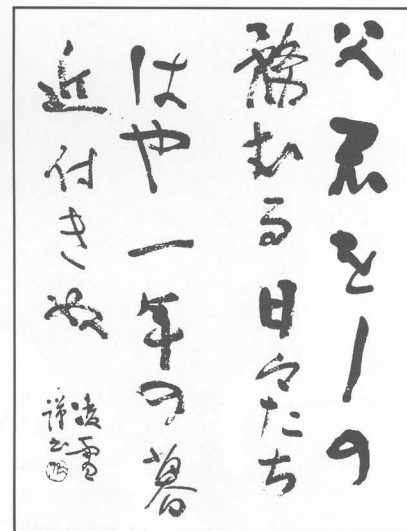 父君をしの
むる日々たち
はや一年の暮
近付きぬ
凌雪
謹書